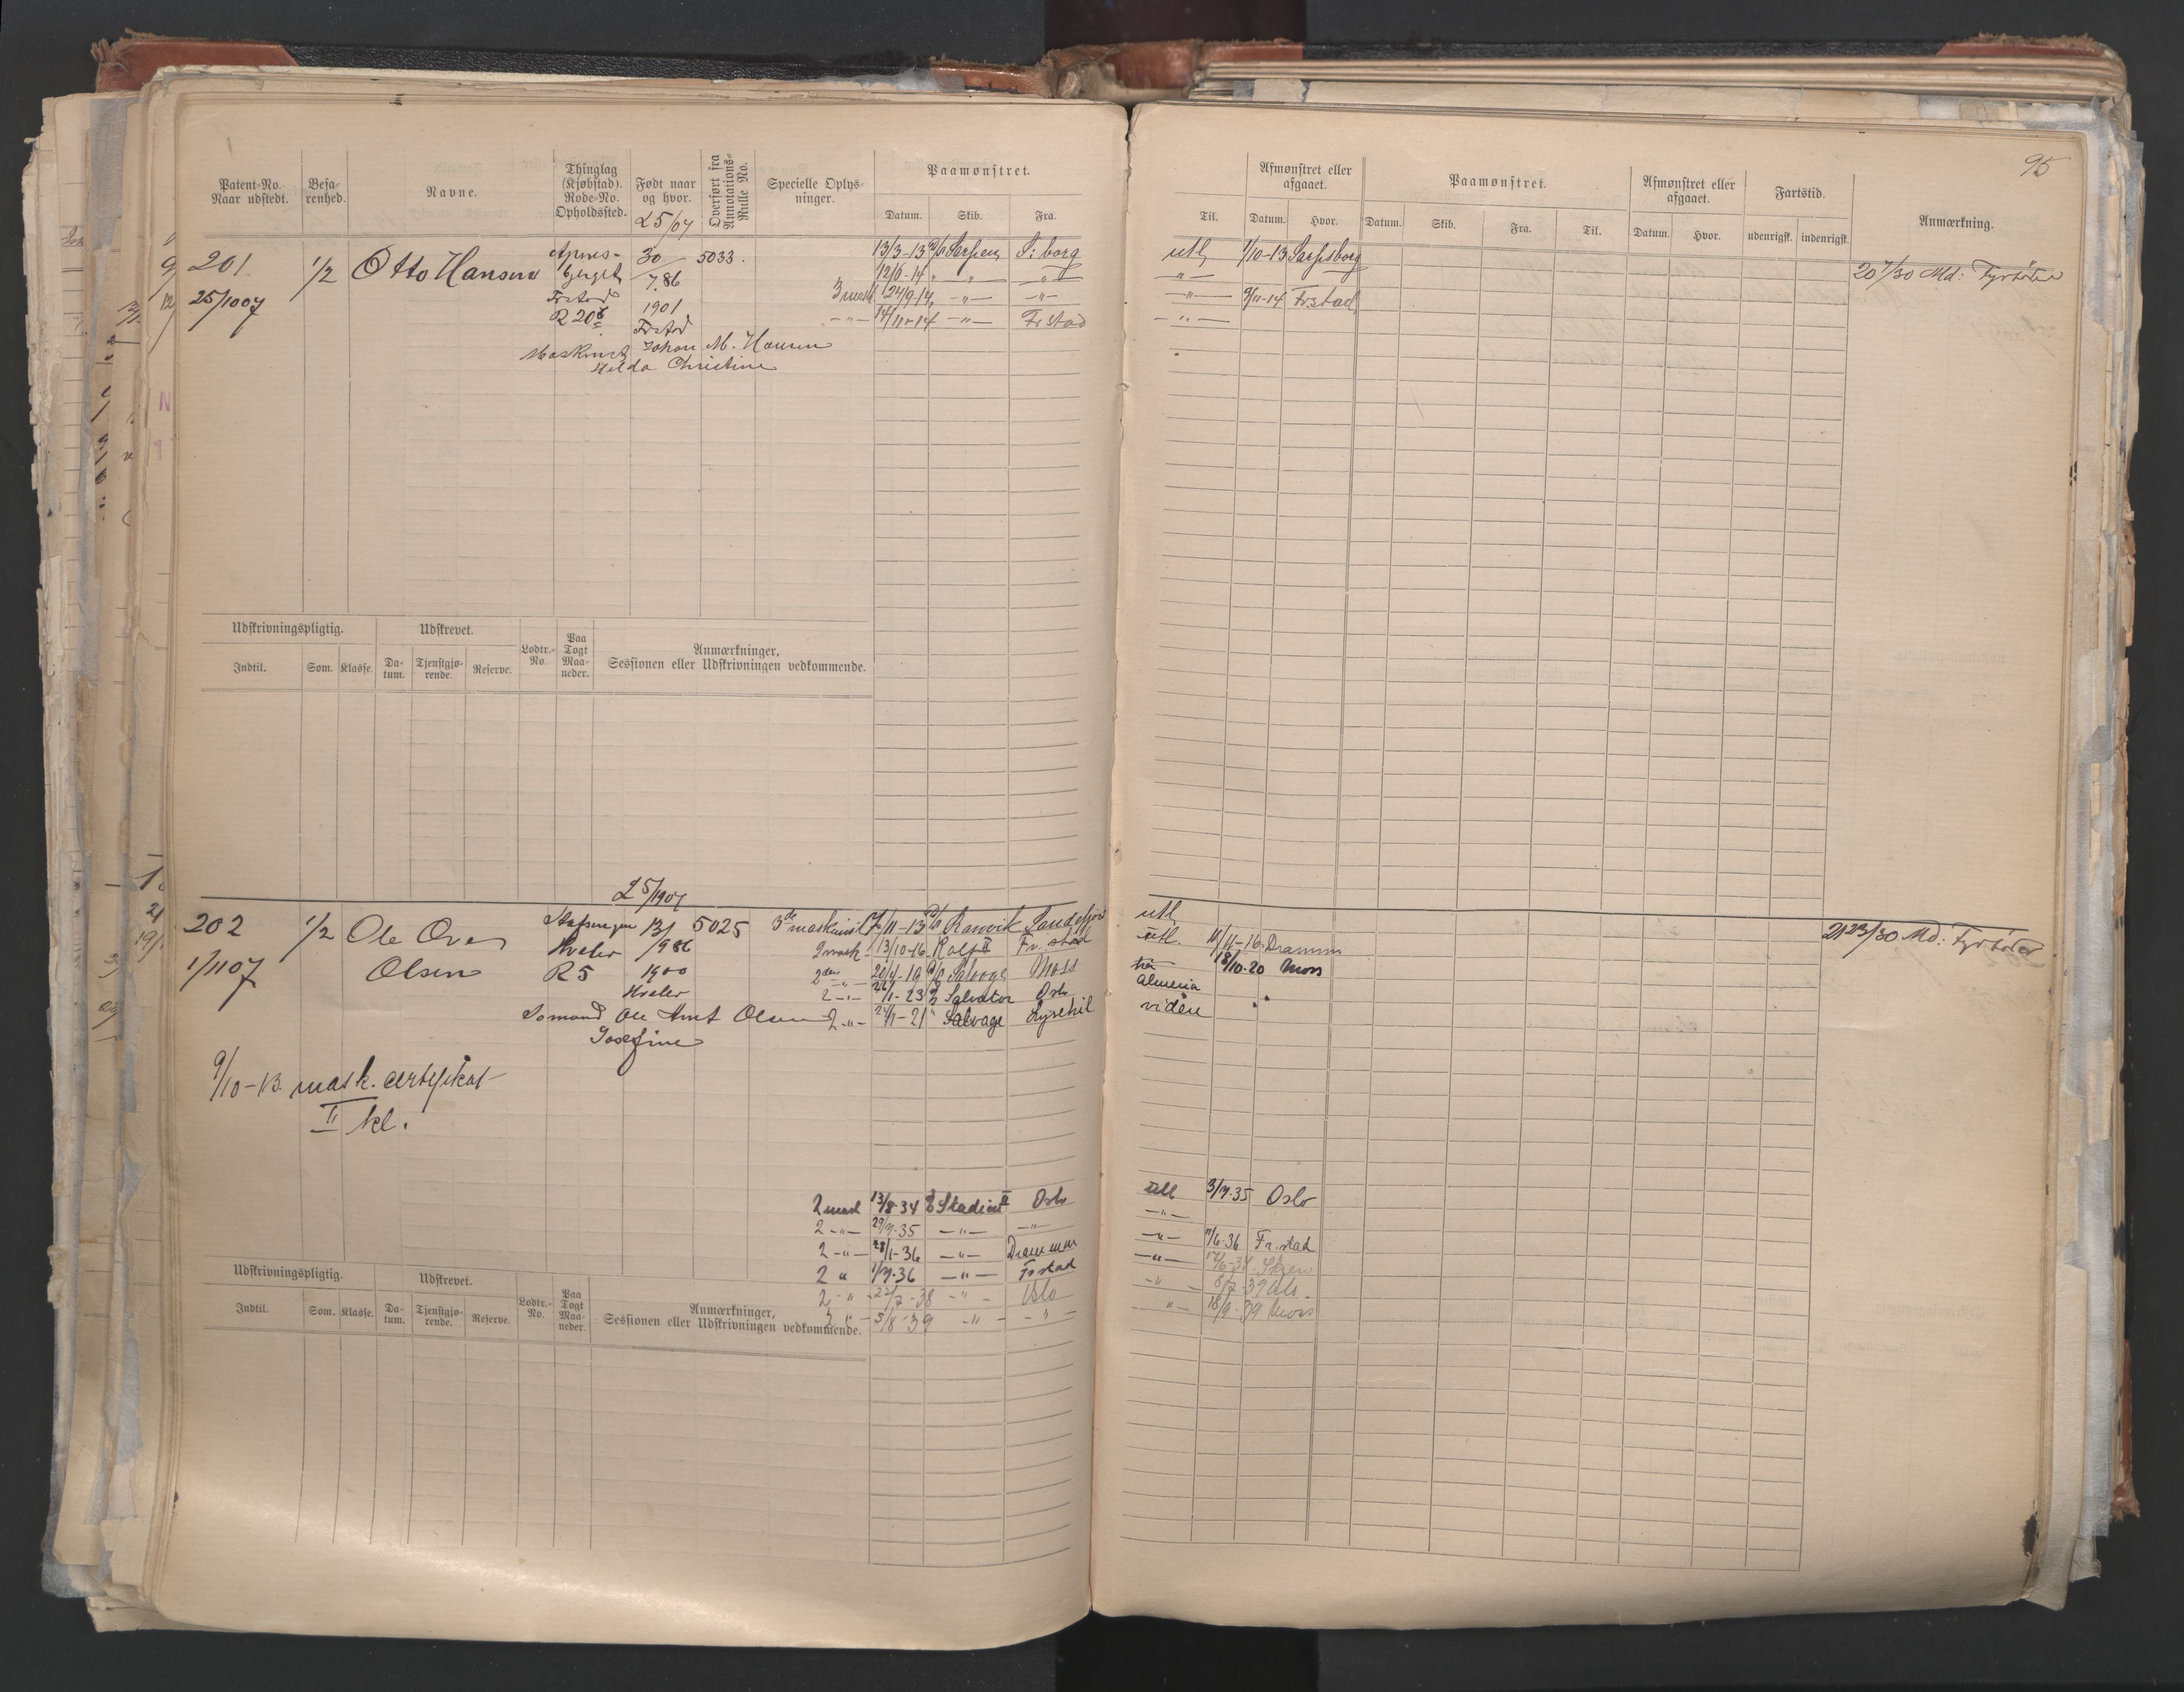 95
Patent-No. Naar udstedt.
Besarenhed.
Navne.
Thinglag (Kjøbstad). Rode-No. Opholdssted.
Født naar og hvor.
Overført fra Annotations-Rulle No.
Specielle Oplysninger.
Paamønstret.
Datum. Skib. Fra.
Til.
Afmønstret eller afgaaet.
Datum. Hvor.
Paamønstret.
Datum. Skib. Fra. Til.
Afmønstret eller afgaaet.
Datum. Hvor.
Fartstid.
udenrigsk. indenrigsk.
Anmærkning.
25/07
201 1/2 Otto Hansen 30/7.86 5033.
25/1007
R 20
1901
Frstad
Johan M. Hansen
Hilda Christine
13/3-13 Sarpen S: borg utl 1/10-13 Sarpsborg
3 mask 24/9-14 -"- -"- -"- 9/11-14 Frstad
-"- 14/11-14 -"- Frstad -"-
20 7/30 Md: Fyrbøter
Udskrivningspligtig.
Udskrevet.
Lodtr.-No.
Paa Togt Maaneder.
Anmærkninger, Sessionen eller Udskrivningen vedkommende.
Indtil. Som. Klasse. Datum. Tjenstgjørende. Reserve.
25/1907
202 1/2 Ole Ove Olsen
1/1107
Hvaler
R 5
13/1 986
1900
Hvaler
5025
Sømand Ole Amt Olsen
Josefine
9/10-13. mask. certifikat
II kl.
3de maskinist /11-13 Ranvik Sandefjord utl
2 mask 13/10-16 Rolf II Fr. stad utl. 11/11-16 Drammen
2den -"- 20/4-19 Salvage Moss 18/10-20 Moss
2 -"- /1-23 Salvator Oslo Almeria
2 -"- /1-21 " Salvage Lysekil videre " "
21 23/30 Md: Fyrbøter
2 mask 13/8-34 Stadion II Oslo utl 3/7-35 Oslo
2 -"- 29/7-35 -"- -"- -"-
2 -"- 28/1-36 -"- Drammen -"- 11/6-36 Fr.stad
2 " 1/7-36 -"- Frstad -"- 17/6-38 Skien
2 -"- 22/7-38 -"- Oslo -"- 8/7-39
2 -"- 5/8-39 -"- -"- -"- 18/9-39 Moss
Udskrivningspligtig.
Udskrevet.
Lodtr.-No.
Paa Togt Maaneder.
Anmærkninger, Sessionen eller Udskrivningen vedkommende.
Indtil. Som. Klasse. Datum. Tjenstgjørende. Reserve.